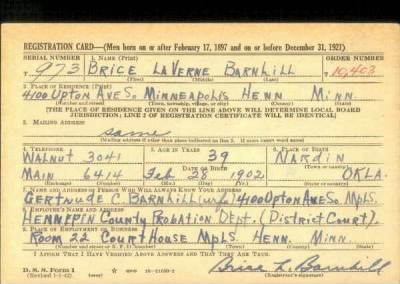 REGISTRATION CARD—(Men born on or after February 17, 1897 and on or before December 31, 1921)
SERIAL NUMBER 1. NAME (Print) ORDER NUMBER
T 973 BRICE LAVERNE BARNHILL 10,403
(First) (Middle) (Last)
2. PLACE OF RESIDENCE (Print)
4100 UPTON AVE SO. MINNEAPOLIS HENN MINN.
(Number and street) (Town, township, village, or city) (County) (State)
[THE PLACE OF RESIDENCE GIVEN ON THE LINE ABOVE WILL DETERMINE LOCAL BOARD
JURISDICTION; LINE 2 OF REGISTRATION CERTIFICATE WILL BE IDENTICAL]
3. MAILING ADDRESS
same
[Mailing address if other than place indicated on line 2. If same insert word same]
4. TELEPHONE 5. AGE IN YEARS 6. PLACE OF BIRTH
WALNUT 3041 39 NARDIN
DATE OF BIRTH (Town or county)
MAIN 6414 Feb 28 1902 OKLA.
(Exchange) (Number) (Mo.) (Day) (Yr.) (State or country)
7. NAME AND ADDRESS OF PERSON WHO WILL ALWAYS KNOW YOUR ADDRESS
GERTRUDE C. BARNHILL (wife) 4100 UPTON AVE SO. MPLS.
8. EMPLOYER'S NAME AND ADDRESS
HENNEPIN COUNTY PROBATION DEPT. (DISTRICT COURT).
9. PLACE OF EMPLOYMENT OR BUSINESS
ROOM 22 COURT HOUSE MPLS. HENN. MINN.
(Number and street or R. F. D. number) (Town) (County) (State)
I AFFIRM THAT I HAVE VERIFIED ABOVE ANSWERS AND THAT THEY ARE TRUE.
D. S. S. Form 1
(Revised 1-1-42) (over) 16—21630-2 Brice L. Barnhill
(Registrant's signature)